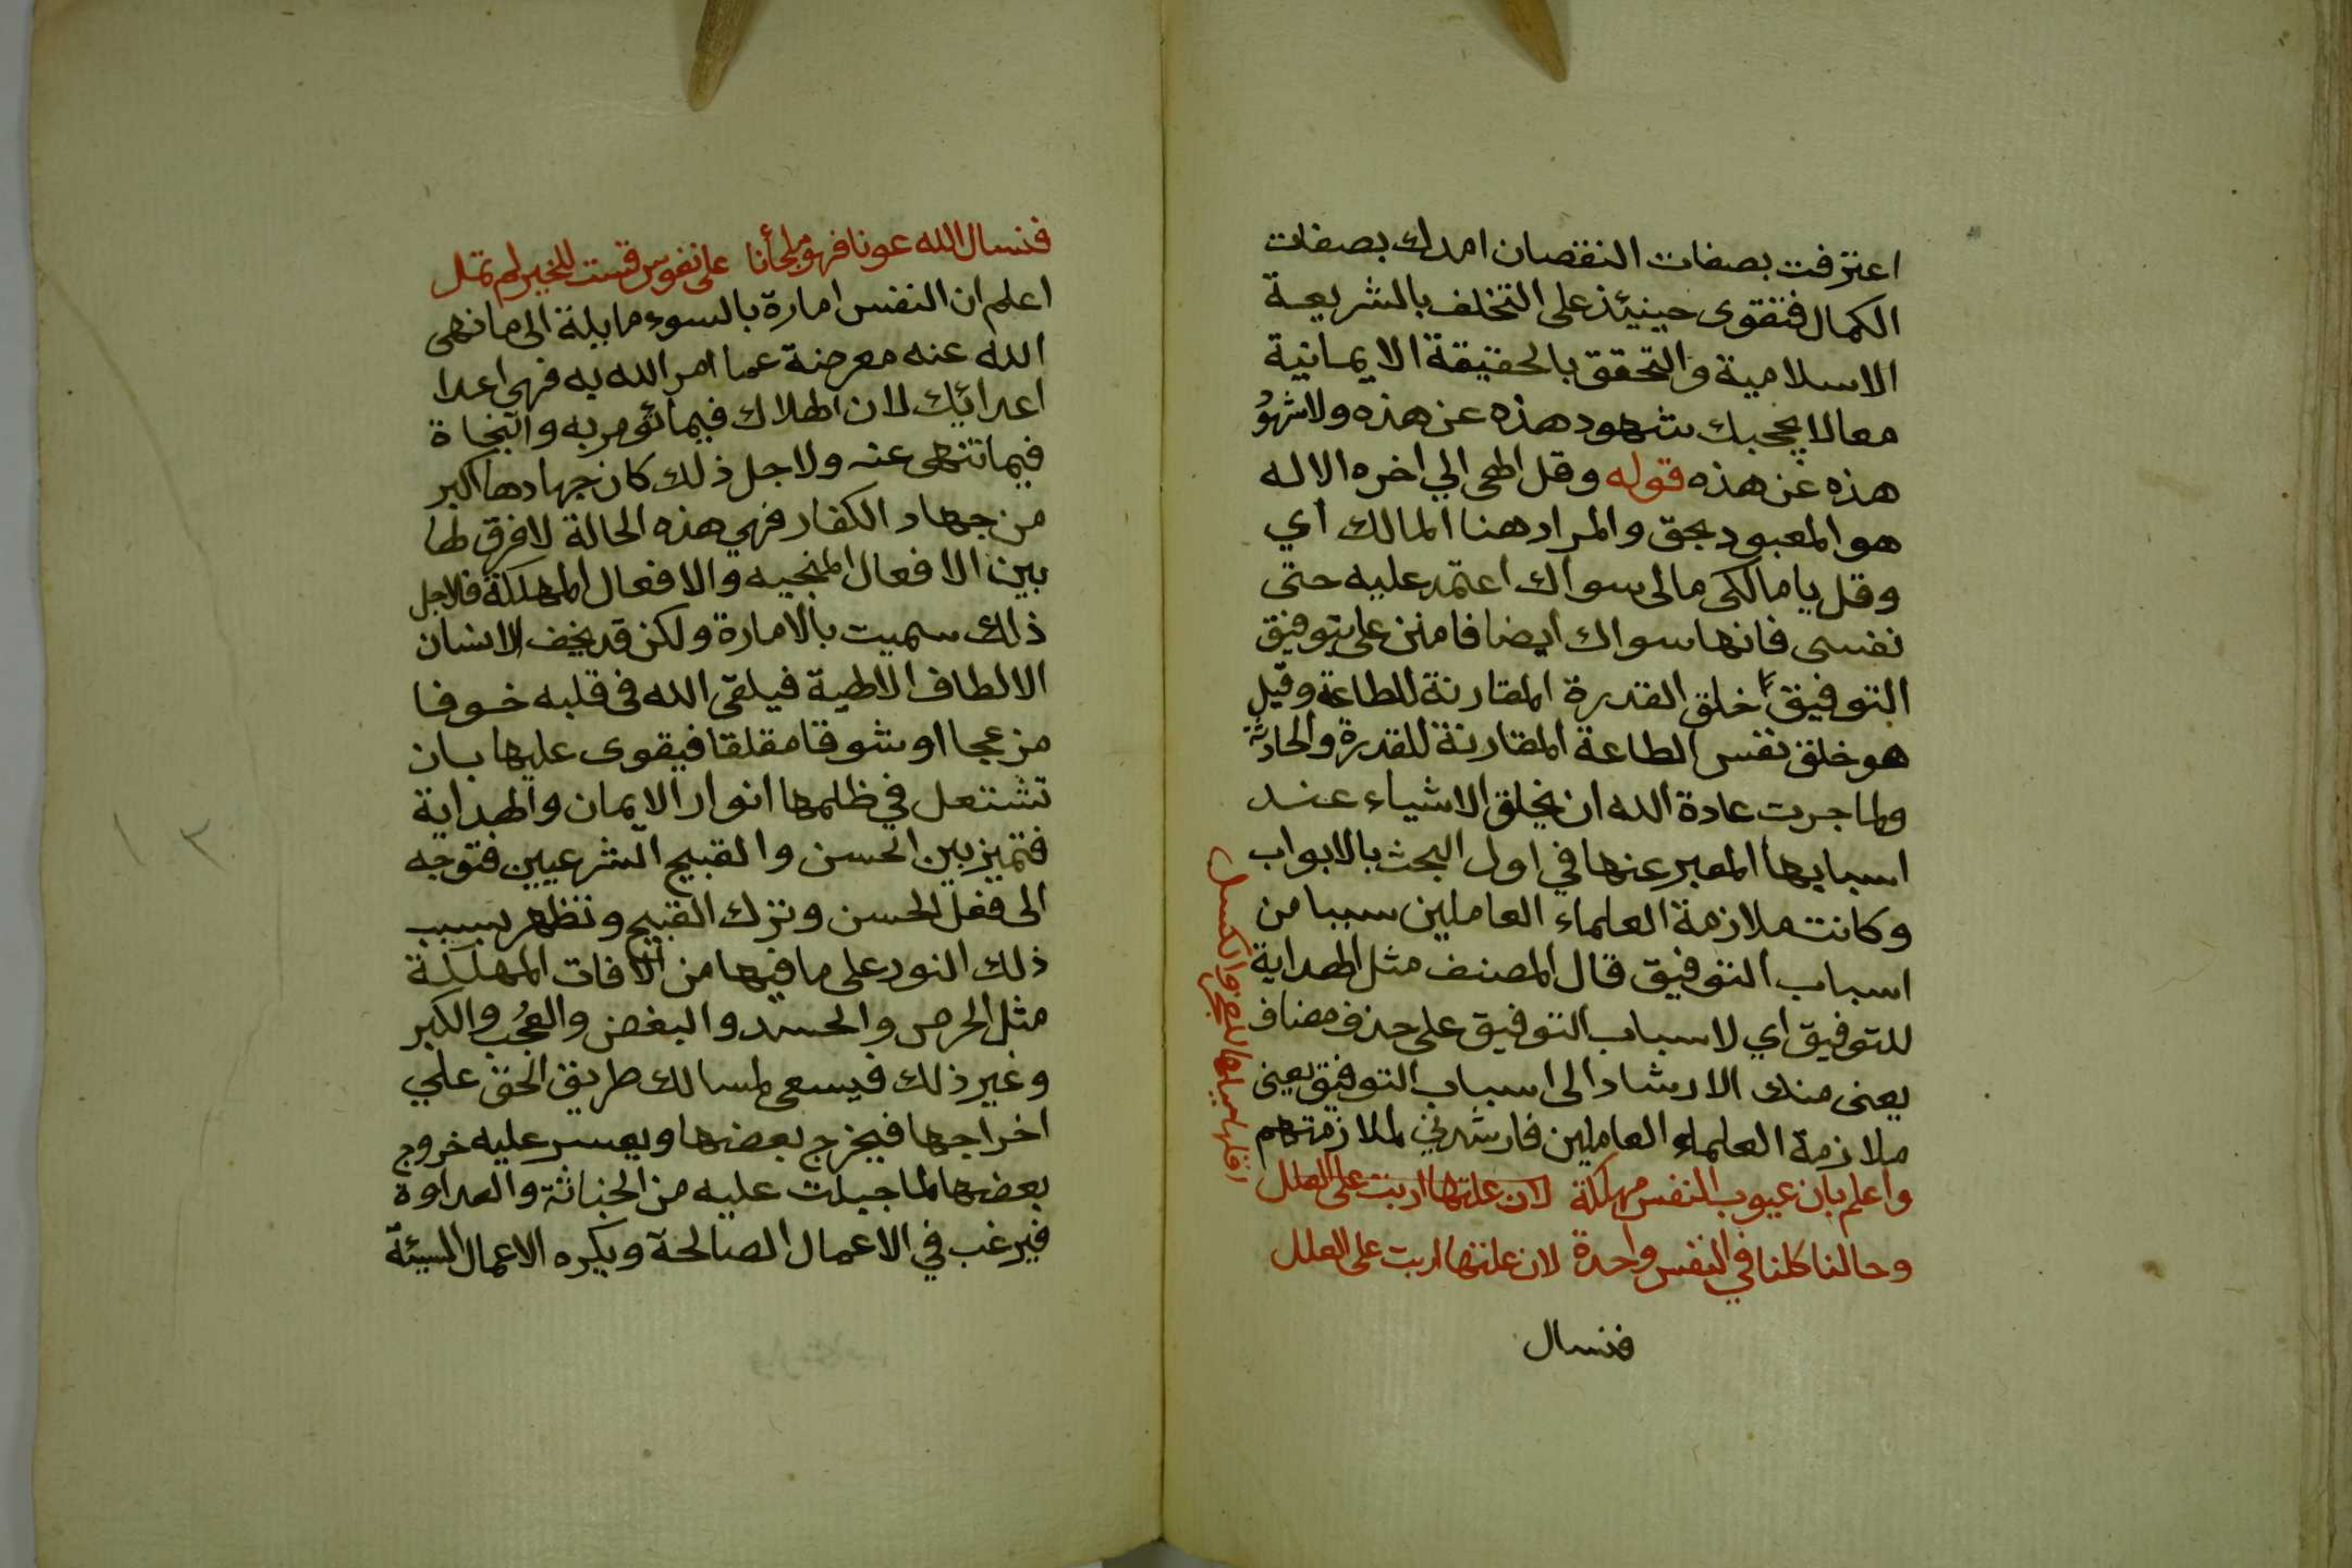 اعترفت بصفات النقصان امدك بصفات
الكمال فتقوى حينيئذ على التخلف بالشريعة
الاسلامية والتحقق بالحقيقة الايمانية
معا لا يحجبك شهود هذه عن هذه ولا شهود
هذه عن هذه قوله وقل الهى الي اخره الاله
هو المعبود بحق والمراد هنا المالك أي
وقل يا مالكى مالى سواك اعتمد عليه حتى
نفسى فانها سواك ايضا فامنن على بتوفيق
التوفيق خلق القدرة المقارنة للطاعة وقيل
هو خلق نفس الطاعة المقارنة للقدرة والحادثة
ولما جرت عادة الله ان يخلق الاشياء عند
اسبابها المعبر عنها في اول البحث بالابواب
وكانت ملازمة العلماء العاملين سببا من
اسباب التوفيق قال المصنف مثل الهداية
للتوفيق اي لاسباب التوفيق على حذف مضاف
يعنى منك الارشاد الى اسباب التوفيق يعنى
ملازمة العلماء العاملين فارشدني لملازمتهم
واعلم بان عيوب النفس مهلكة لان علتها اربت على العلل
وحالنا كلنا في النفس واحدة لان علتها اربت على العلل
اقلها ميلها للعجز والكسل
فنسال
فنسال الله عونا فهو ملجأنا على نفوس قست للخير لم تمل
اعلم ان النفس امارة بالسوء مايلة الى ما نهى
الله عنه معرضة عما امر الله به فهى اعدا
اعدائك لان الهلاك فيما تؤمر به والنجاة
فيما تنهى عنه ولاجل ذلك كان جهادها اكبر
من جهاد الكفار فهي هذه الحالة لا فرق لها
بين الافعال المنجيه والافعال المهلكة فلاجل
ذلك سميت بالامارة ولكن قد يخف الانسان
الالطاف الالهية فيلقى الله فى قلبه خوفا
مزعجا او شوقا مقلقا فيقوى عليها بان
تشتعل في ظلمها انوار الايمان والهداية
فتميز بين الحسن والقبيح الشرعيين فتوجه
الى فعل الحسن وترك القبيح وتظهر بسبب
ذلك النور على ما فيها من الافات المهلكة
مثل الحرص والحسد والبغض والعجُب والكبر
وغير ذلك فيسعى لمسالك طريق الحق علي
اخراجها فيخرج بعضها ويعسر عليه خروج
بعضها لما جبلت عليه من الخباثة والعداوة
فيرغب في الاعمال الصالحة ويكره الاعمال السيئة